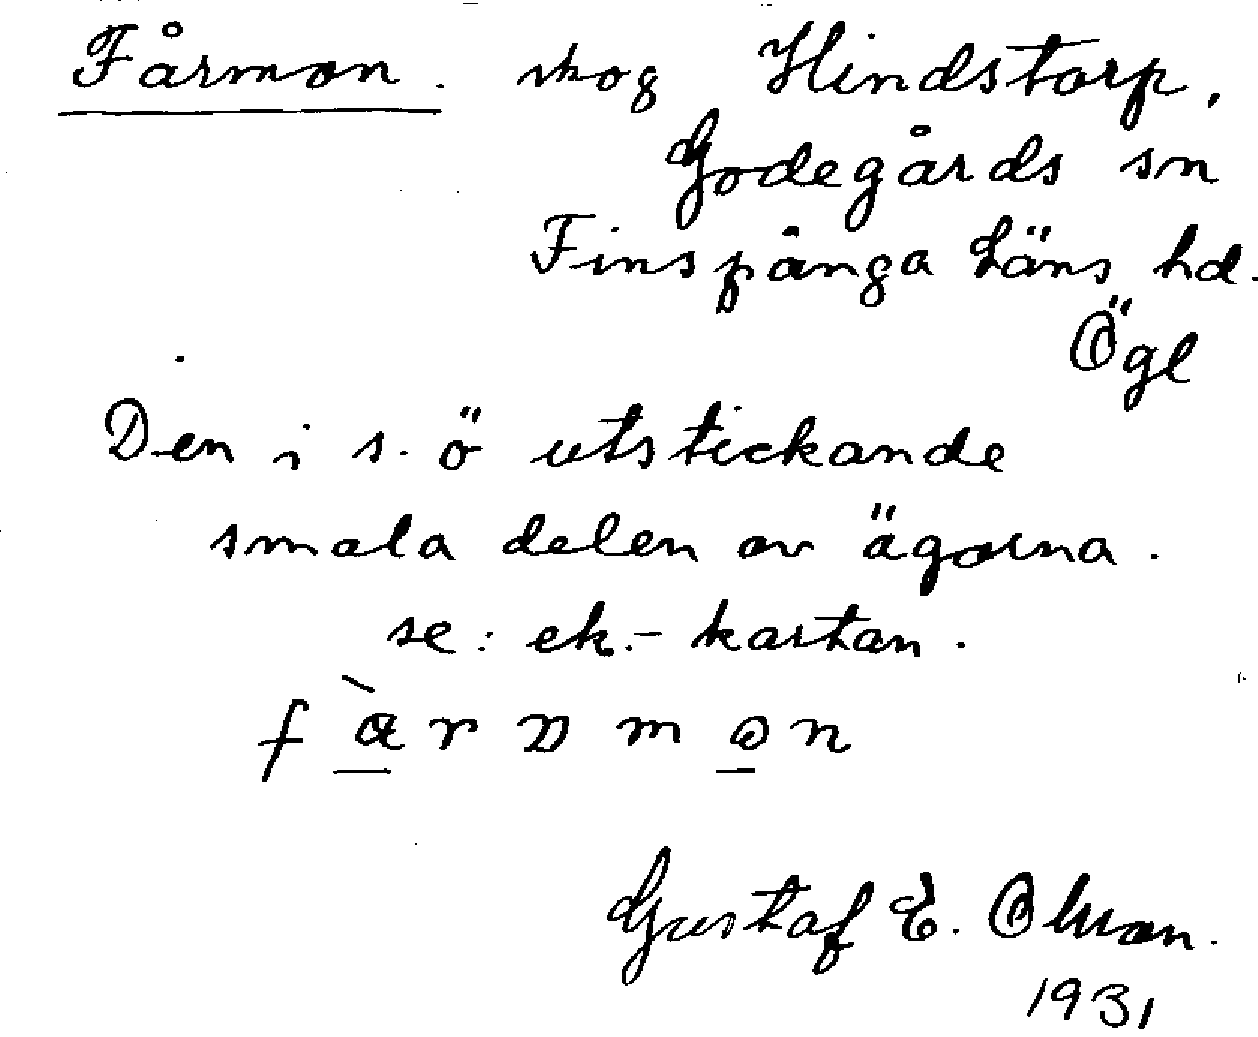 Fårmon. skog Hindstorp,
Godegårds sn
Finspånga Läns hd.
Ögl
Den i s. ö utstickande
smala delen av ägorna.
se: ek.- kartan.
Gustaf E. Olsson.
1931